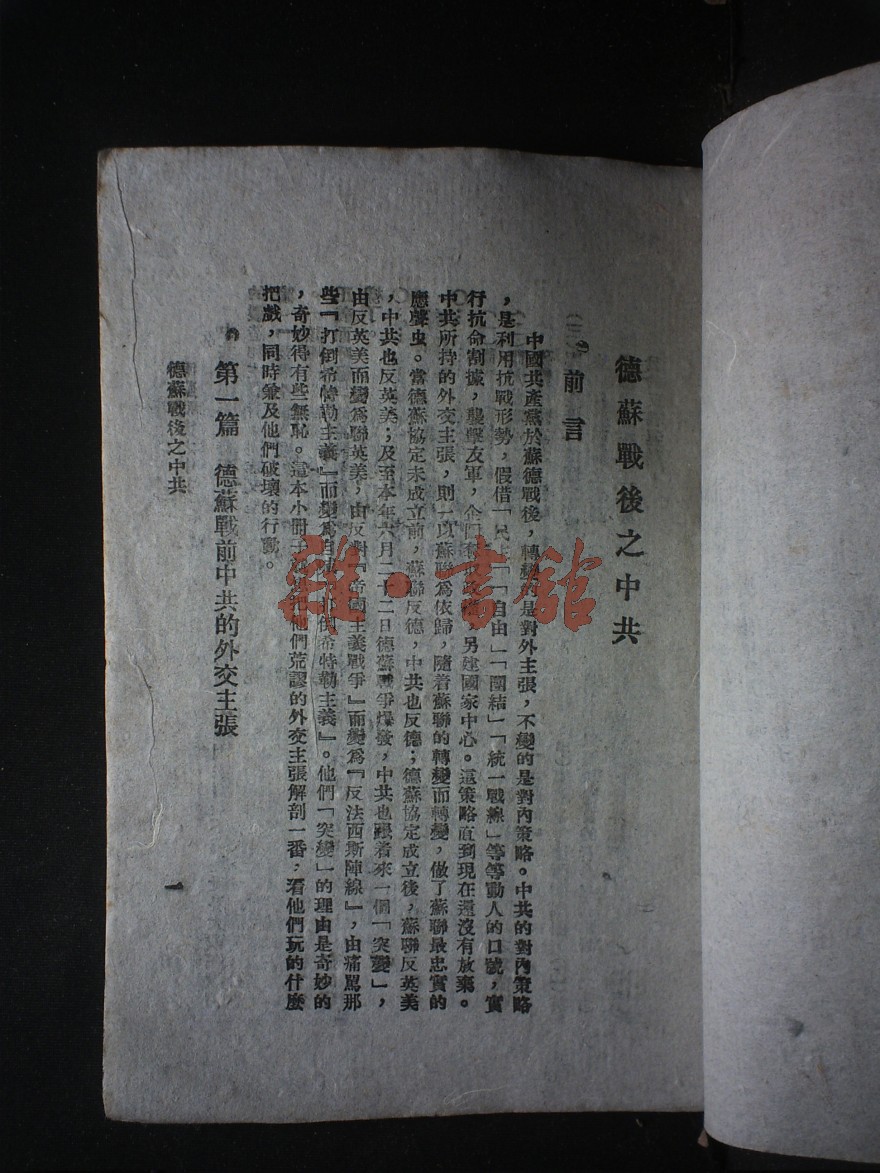 德蘇戰後之中共
前言
中國共產黨於蘇德戰後，轉變的是對外主張，不變的是對內策略。中共的對內策略
，是利用抗戰形勢，假借「民主」「自由」「團結」「統一戰線」等等動人的口號，實
行抗命割據，襲擊友軍，企圖政權，另建國家中心。這策略直到現在還沒有放棄。
中共所持的外交主張，則一以蘇聯為依歸，隨着蘇聯的轉變而轉變，做了蘇聯最忠實的
應聲虫。當德蘇協定未成立前，蘇聯反德，中共也反德；德蘇協定成立後，蘇聯反英美
，中共也反英美；及至本年六月二十二日德蘇戰爭爆發，中共也跟着來一個「突變」，
由反英美而變為聯英美，由反對『帝國主義戰爭』而變為『反法西斯陣線』，由痛罵那
些『打倒希特勒主義』而變為自打倒希特勒主義』。他們「突變」的理由是奇妙的
，奇妙得有些無恥。這本小冊子把他們荒謬的外交主張解剖一番，看他們玩的什麼
把戲，同時兼及他們破壞的行動。
第一篇　德蘇戰前中共的外交主張
德蘇戰後之中共
一
雜·書館